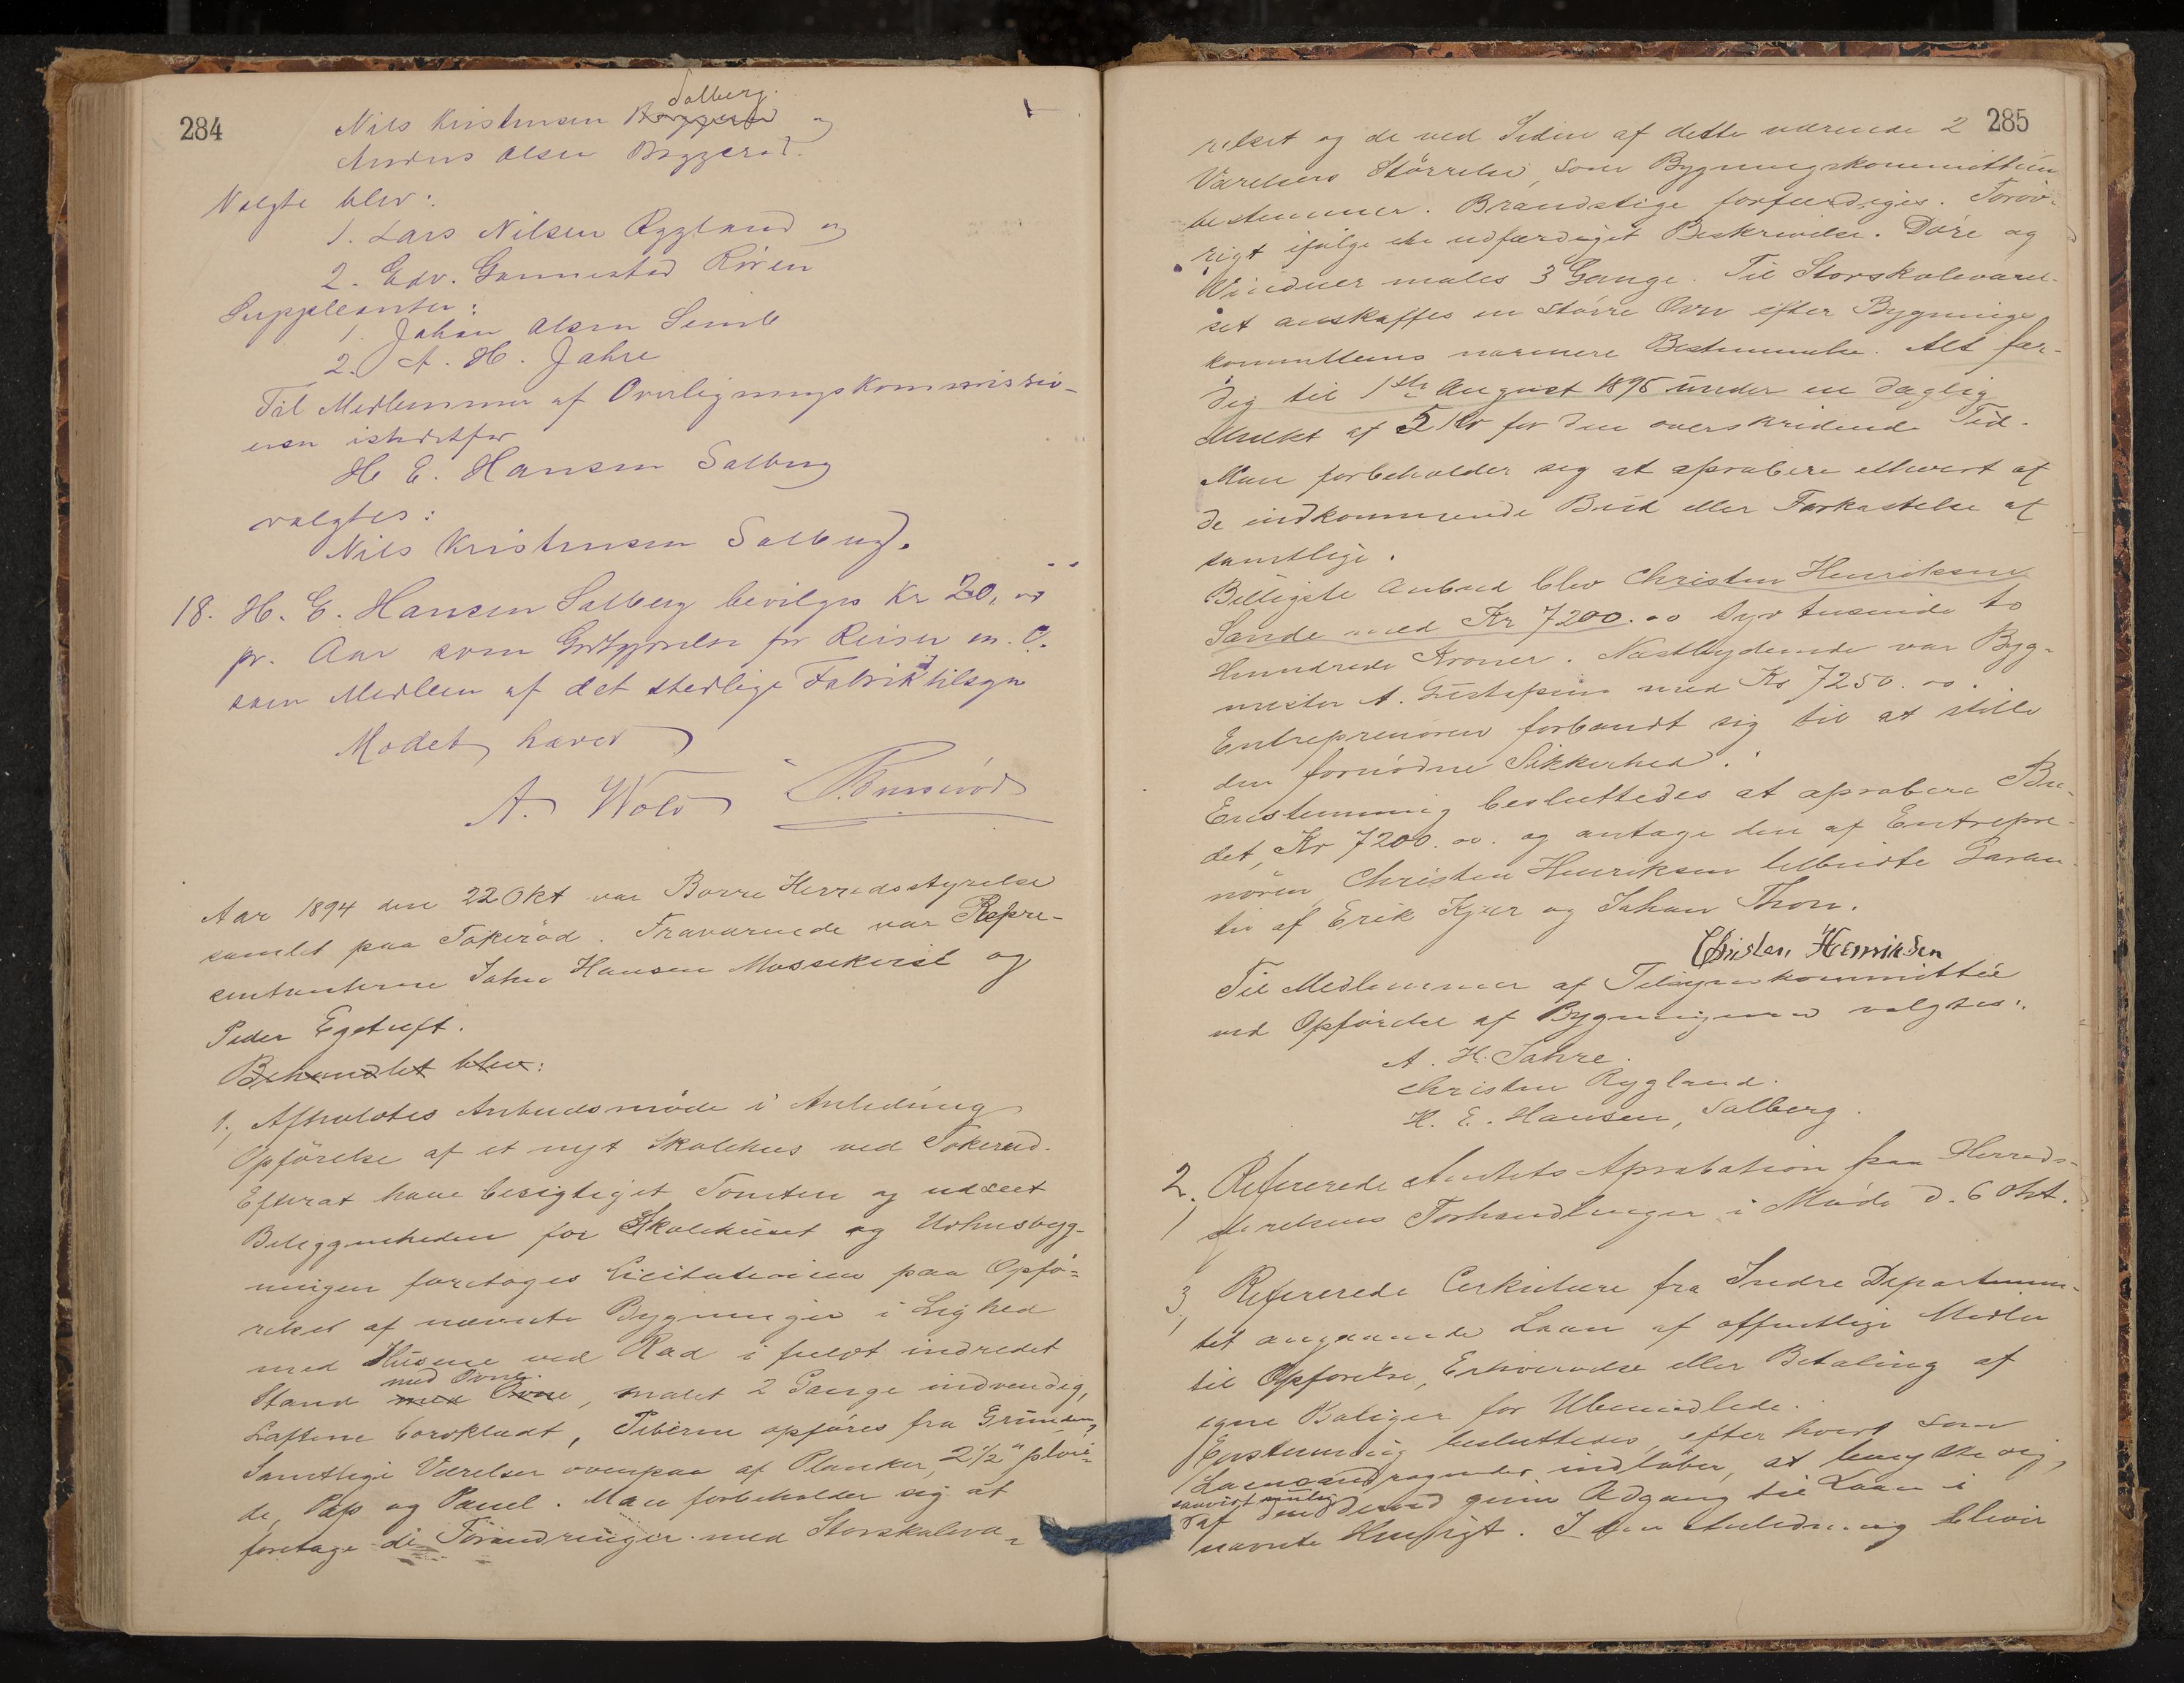 284
Solberg.
Nils Kristensen Bæggerød og
Anders Olsen Bæggerød.
Valgte blev:
1. Lars Nilsen Rygland og
2. Edv. Gannestad Røren
Suppleanter:
1. Johan Olsen Semb
2. A. H. Jahre
Til Medlemmer af Overligningskommissio-
nen istedetfor
H. E. Hansen Solberg
valgtes:
Nils Kristensen Solberg.
18. H. E. Hansen Solberg bevilges Kr 20,00
pr. Aar som Godtgjørelse for Reiser m. v.
som Medlem af det stedlige Fabriktilsyn
Mødet hævet
A. Wold
Aar 1894 den 22 Okt var Borre Herredsstyrelse
samlet paa Tokerød. Fraværende var Repre-
sentanterne Johan Hansen Mossekvist og
Peder Egetuft.
Behandlet blev:
1, Afholdtes Anbudsmøde i Anledning
Opførelse af et nyt Skolehus ved Tokerød.
Efterat have besigtiget Tomten og udseet
Beliggenheden for Skolehuset og Udhusbyg-
ningen foretoges Licitationen paa Opfø-
relsel af nævnte Bygninger i Lighed
med Husene ved Rød i fuldt indredet
med Ovne.
Stand med Ovne, malet 2 Gange indvendig,
Loftene bordklædt, Piberne opføres fra Grunden,
Samtlige Værelser ovenpaa af Planker, 2½" pløie-
de, Pap og Panel. Man forbeholder sig at
foretage de Forandringer med Storskolevæ-
285
relset og de ved Siden af dette værende 2
Værelsers Størrelse, som Bygningskommitteen
bestemmer. Brandstige forfærdiges. Forøv-
rigt ifølge den udfærdiget Beskrivelse. Døre og
Vinduer males 3 Gange. Til Storskoleværel-
set anskaffes en større Ovn efter Bygnings
kommitteens nærmere Bestemmelse. Alt fær-
dig til 1ste August 1895 under en daglig
Mulkt af 5 Kr for den overskridende Tid.
Man forbeholder sig at aprobere ethvert af
de indkommende Bud eller Forkastelse af
samtlige.
Billigste Anbud blev Christen Henriksen
Sande med Kr 7200.00 Syv tusinde to
Hundrede Kroner. Næstbydende var Byg-
mester A. Gustafsen med Kr 7250.00.
Entreprenøren forbandt sig til at stille
den fornødne Sikkerhed.
Enstemmig besluttedes at aprobere Bu-
det, Kr 7200.00. og antage den af Entrepre-
nøren Christen Henriksen tilbudte Garan-
ti af Erik Kjær og Johan Thon.
Christen Henriksen
Til Medlemmer af Tilsynskommittée
ved Opførelse af Bygningerne valgtes:
A. H. Jahre.
Christen Rygland.
H. E. Hansen, Solberg.
2, Refererede Amtets Aprobation paa Herreds-
styrelsens Forhandlinger i Møde d. 6 Okt.
3, Refererede Cirkulære fra Indre Departemen-
tet angaaende Laan af offentlige Midler
til Opførelse, Erhvervelse eller Betaling af
egne Boliger for Ubemidlede.
Enstemmig besluttedes efter hvert som
Laaneandragender indløber, at benytte sig,
saavidt mulig
af den derved givne Adgang til Laan i
nævnte Hensigt. I den Anledning bliver